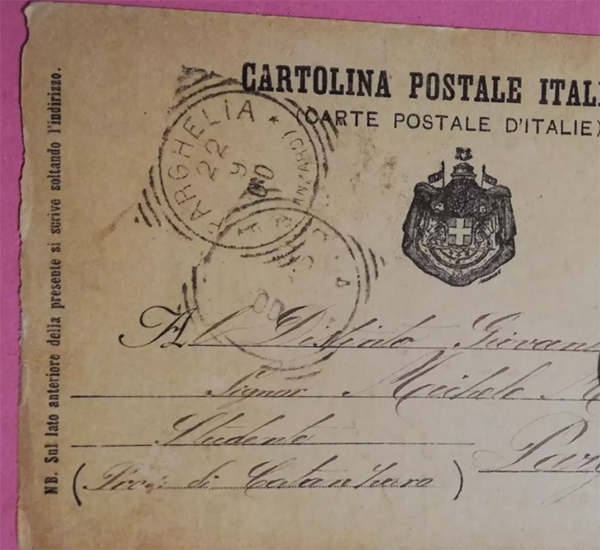 CARTOLINA POSTALE ITALI
(CARTE POSTALE D'ITALIE)
PARGHELIA *
22
9
00
00
Al Distinto Giovan
Signor Michele M
Studente
Parg
(Prov: di Catanzaro)
NB. Sul lato anteriore della presente si scrive soltando l'indirizzo.